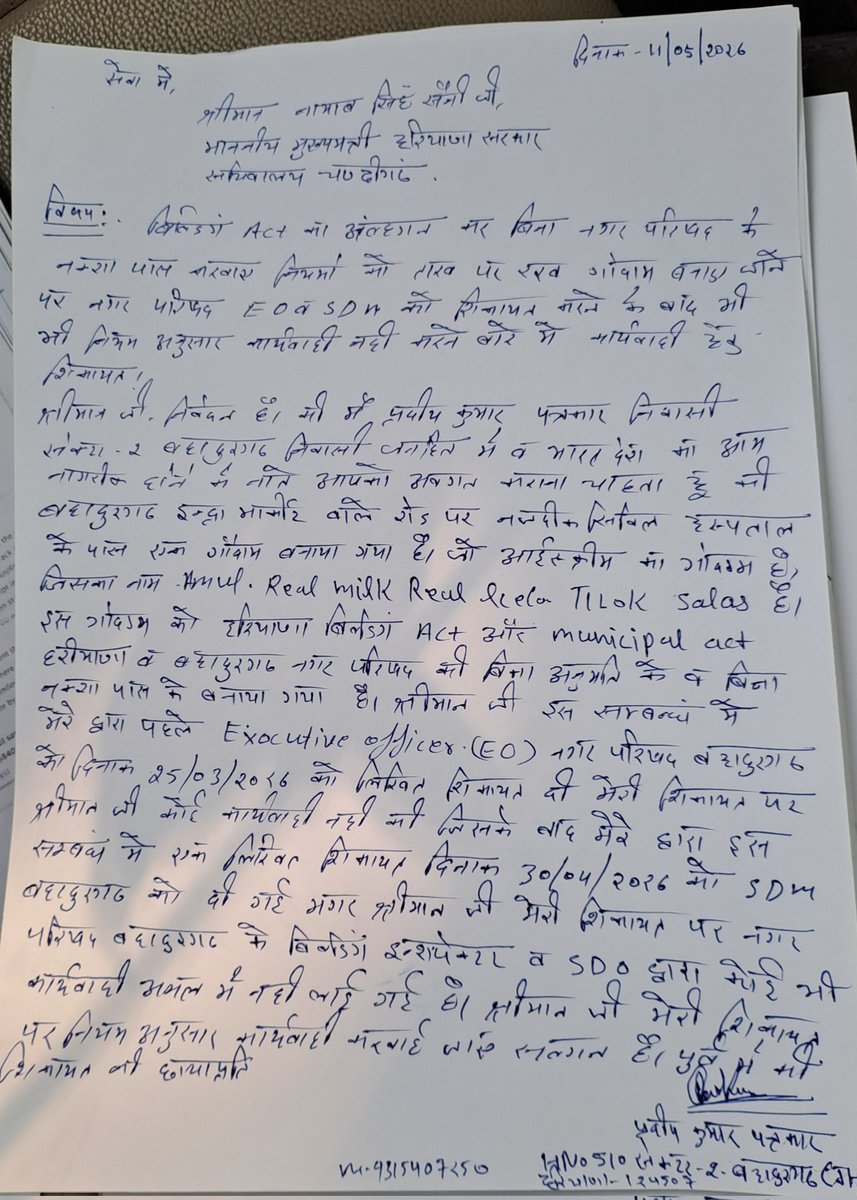 दिनाक - 11/05/2026
सेवा में,
श्रीमान नायाब सिंह सैनी जी,
माननीय मुख्यमंत्री हरियाणा सरकार
सचिवालय चण्डीगढ़.
विषय:. बिल्डिंग Act का अवहेलना कर बिना नगर परिषद के
नक्शा पास करवाए नियमों को ताख पर रख गोदाम बनाए जाने
पर नगर परिषद EO व SDM को शिकायत करने के बाद भी
भी नियम अनुसार कार्यवाही नहीं करने बारे में कार्यवाही हेतु
शिकायत।
श्रीमान जी. निवेदन है। की मैं प्रदीप कुमार पत्रकार निवासी
सेक्टर - 2 बहादुरगढ निवासी जनहित में व भारत देश का आम
नागरिक होने के नाते आपको अवगत कराना चाहता हूं की
बहादुरगढ इन्द्रा मार्कीट वाले रोड पर नजदीक सिविल हस्पताल
के पास एक गोदाम बनाया गया है। जो आईस्क्रीम का गोदाम है,
जिसका नाम Amul. Real milk Real TILOK salas है।
इस गोदाम को हरियाणा बिल्डिंग Act और municipal act
हरीयाणा व बहादुरगढ नगर परिषद की बिना अनुमति के व बिना
नक्शा पास के बनाया गया है। श्रीमान जी इस सम्बन्ध में
मेरे द्वारा पहले Exocutive officer.(EO) नगर परिषद बहादुरगढ
को दिनाक 25/03/2026 को लिखित शिकायत दी मेरी शिकायत पर
श्रीमान जी कोई कार्यवाही नहीं की जिसके बाद मेरे द्वारा इस
सम्बंध में एक लिखित शिकायत दिनाक 30/04/2026 को SDM
बहादुरगढ को दी गई मगर श्रीमान जी मेरी शिकायत पर नगर
परिषद बहादुरगढ के बिल्डिंग इन्सपेक्टर व SDO द्वारा कोई भी
कार्यवाही अमल में नहीं लाई गई है। श्रीमान जी मेरी शिकायत
पर नियम अनुसार कार्यवाही करवाई जाए सलंगन है। पूर्व में की
शिकायत की छायाप्रति
प्रदीप कुमार पत्रकार
M.9315407250 HNO 510 सेक्टर-2. बहादुरगढ
हरियाणा - 124507